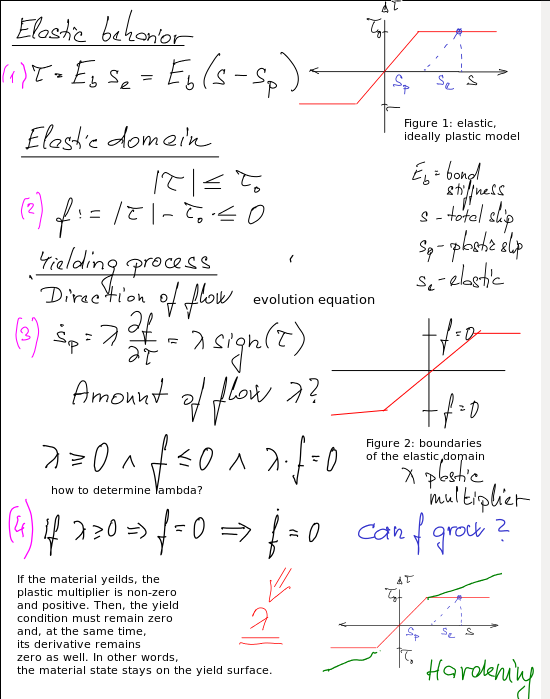 Elastic behavior
(1) τ = E_b s_e = E_b (s - s_p)
τ
τ₀
s_p s_e s
Figure 1: elastic,
ideally plastic model
Elastic domain
|τ| ≤ τ₀
(2) f := |τ| - τ₀ ≤ 0
E_b = bond
stiffness
s - total slip
s_p - plastic slip
s_e - elastic
Yielding process
Direction of flow evolution equation
(3) ṡ_p = λ ∂f/∂τ = λ sign(τ)
f=0
f=0
Amount of flow λ?
Figure 2: boundaries
of the elastic domain
λ ≥ 0 ∧ f ≤ 0 ∧ λ·f = 0
λ plastic
multiplier
how to determine lambda?
(4) if λ≥0 ⇒ f=0 ⇒ ḟ = 0
Can f grow?
If the material yeilds, the
plastic multiplier is non-zero
and positive. Then, the yield
condition must remain zero
and, at the same time,
its derivative remains
zero as well. In other words,
the material state stays on the yield surface.
λ
τ
τ₀
s_p s_e s
τ₀
Hardening